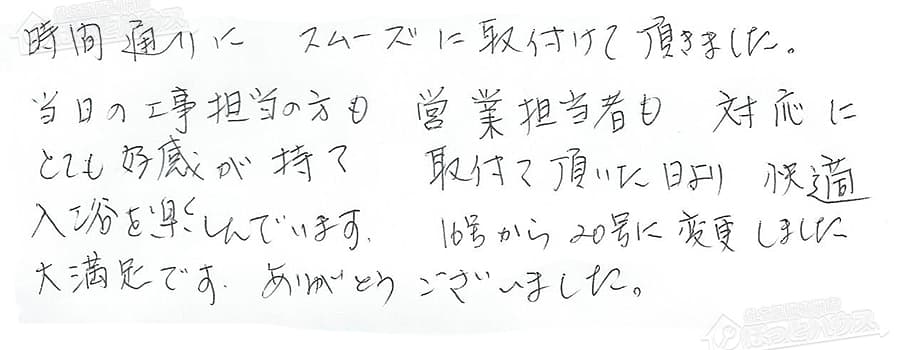 時間通りに スムーズに取付けて頂きました。
当日の工事担当の方も 営業担当者も 対応に
とても好感が持て 取付て頂いた日より 快適
入浴を楽しんでいます. 16号から20号に変更しました
大満足です. ありがとうございました。